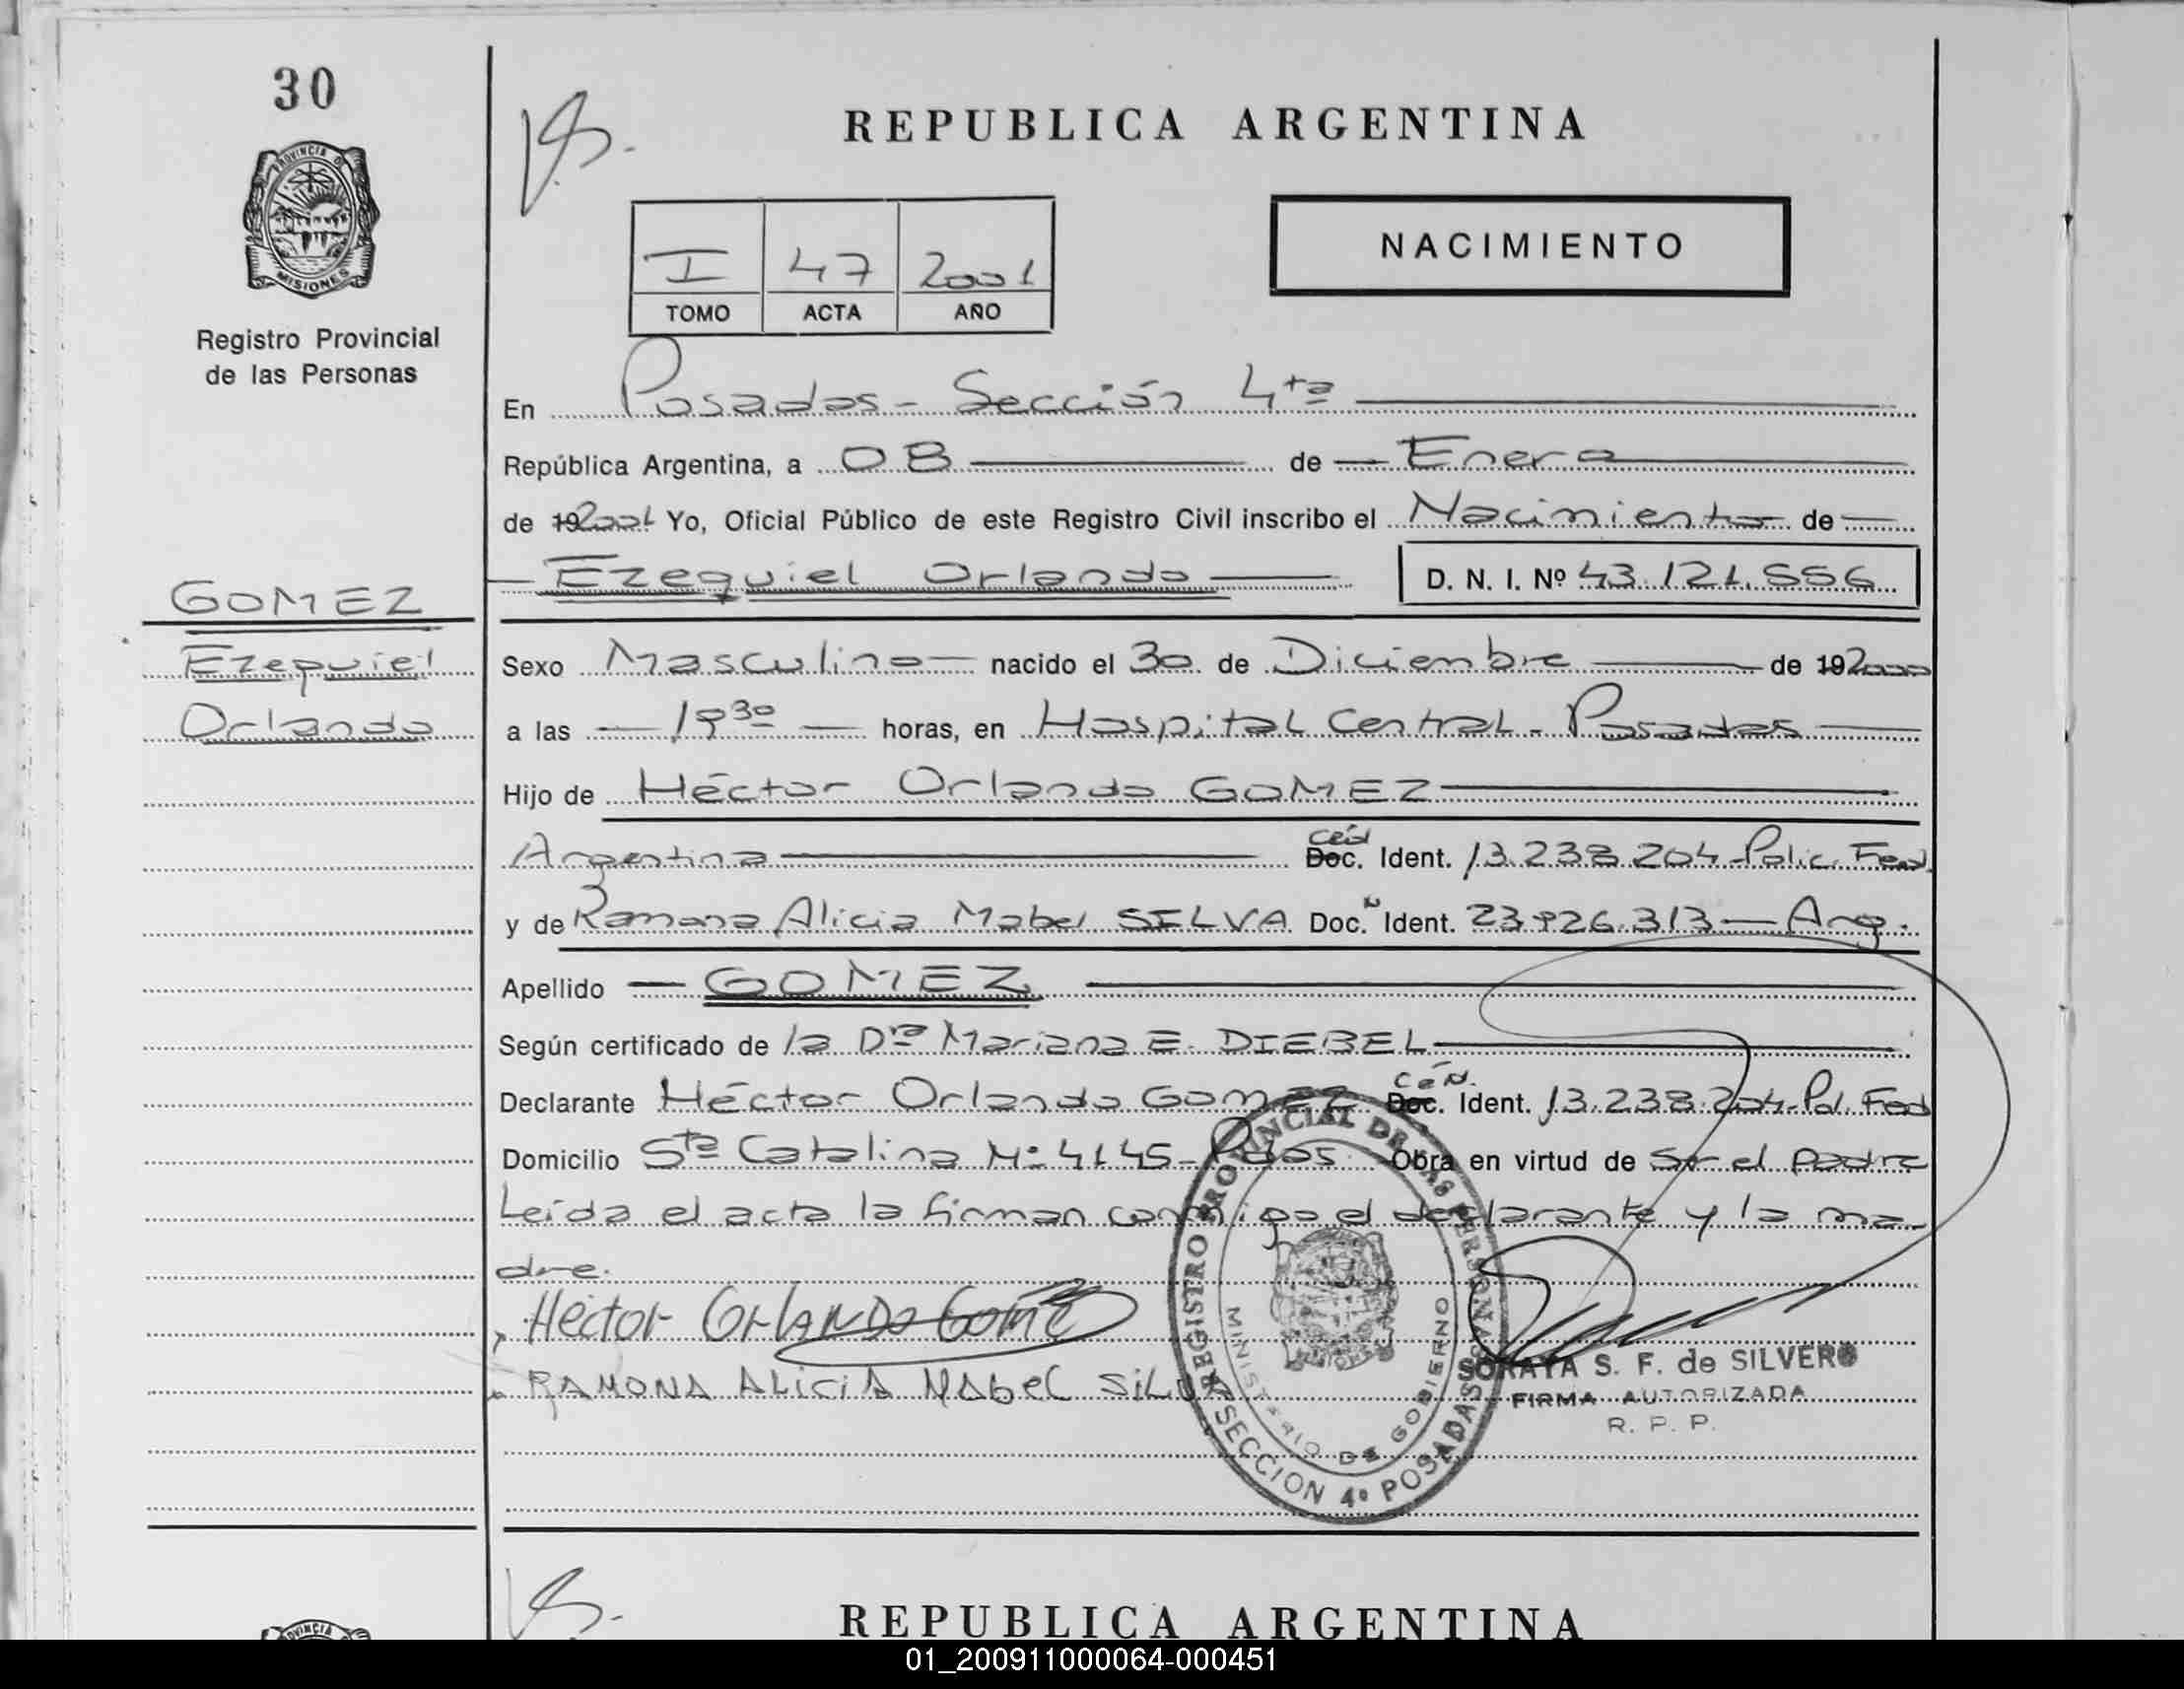 30
REPUBLICA ARGENTINA
PROVINCIA D
MISIONES
Registro Provincial
de las Personas
I 47 2001
TOMO ACTA AÑO
NACIMIENTO
En Posadas - Sección 4ta
República Argentina, a 08 de Enero
de 19 2001 Yo, Oficial Público de este Registro Civil inscribo el Nacimiento de
Ezequiel Orlando D. N. I. Nº 43.121.556
GOMEZ
Ezequiel
Orlando
Sexo Masculino nacido el 30 de Diciembre de 19 2000
a las 19 30 horas, en Hospital Central - Posadas
Hijo de Héctor Orlando GOMEZ
Argentina Céd Doc. Ident. 13.238.204 - Polic. Fed.
y de Ramona Alicia Mabel SILVA Doc. N Ident. 23.926.313 - Arg.
Apellido GOMEZ
Según certificado de la Dra Mariana E. DIEBEL
Declarante Héctor Orlando GOMEZ Céd. Doc. Ident. 13.238.204 - Pol. Fed
Domicilio Sta Catalina Nº 4145 - Pdas. Obra en virtud de ser el padre
Leída el acta la firman conmigo el declarante y la ma-
dre.
Héctor Orlando Gomez
RAMONA ALICIA MABEL SILVA
REGISTRO PROVINCIAL DE LAS PERSONAS
MINISTERIO DE GOBIERNO
SECCION 4º POSADAS
SORAYA S. F. de SILVERO
FIRMA AUTORIZADA
R. P. P.
REPUBLICA ARGENTINA
OVINCIA
01_200911000064-000451